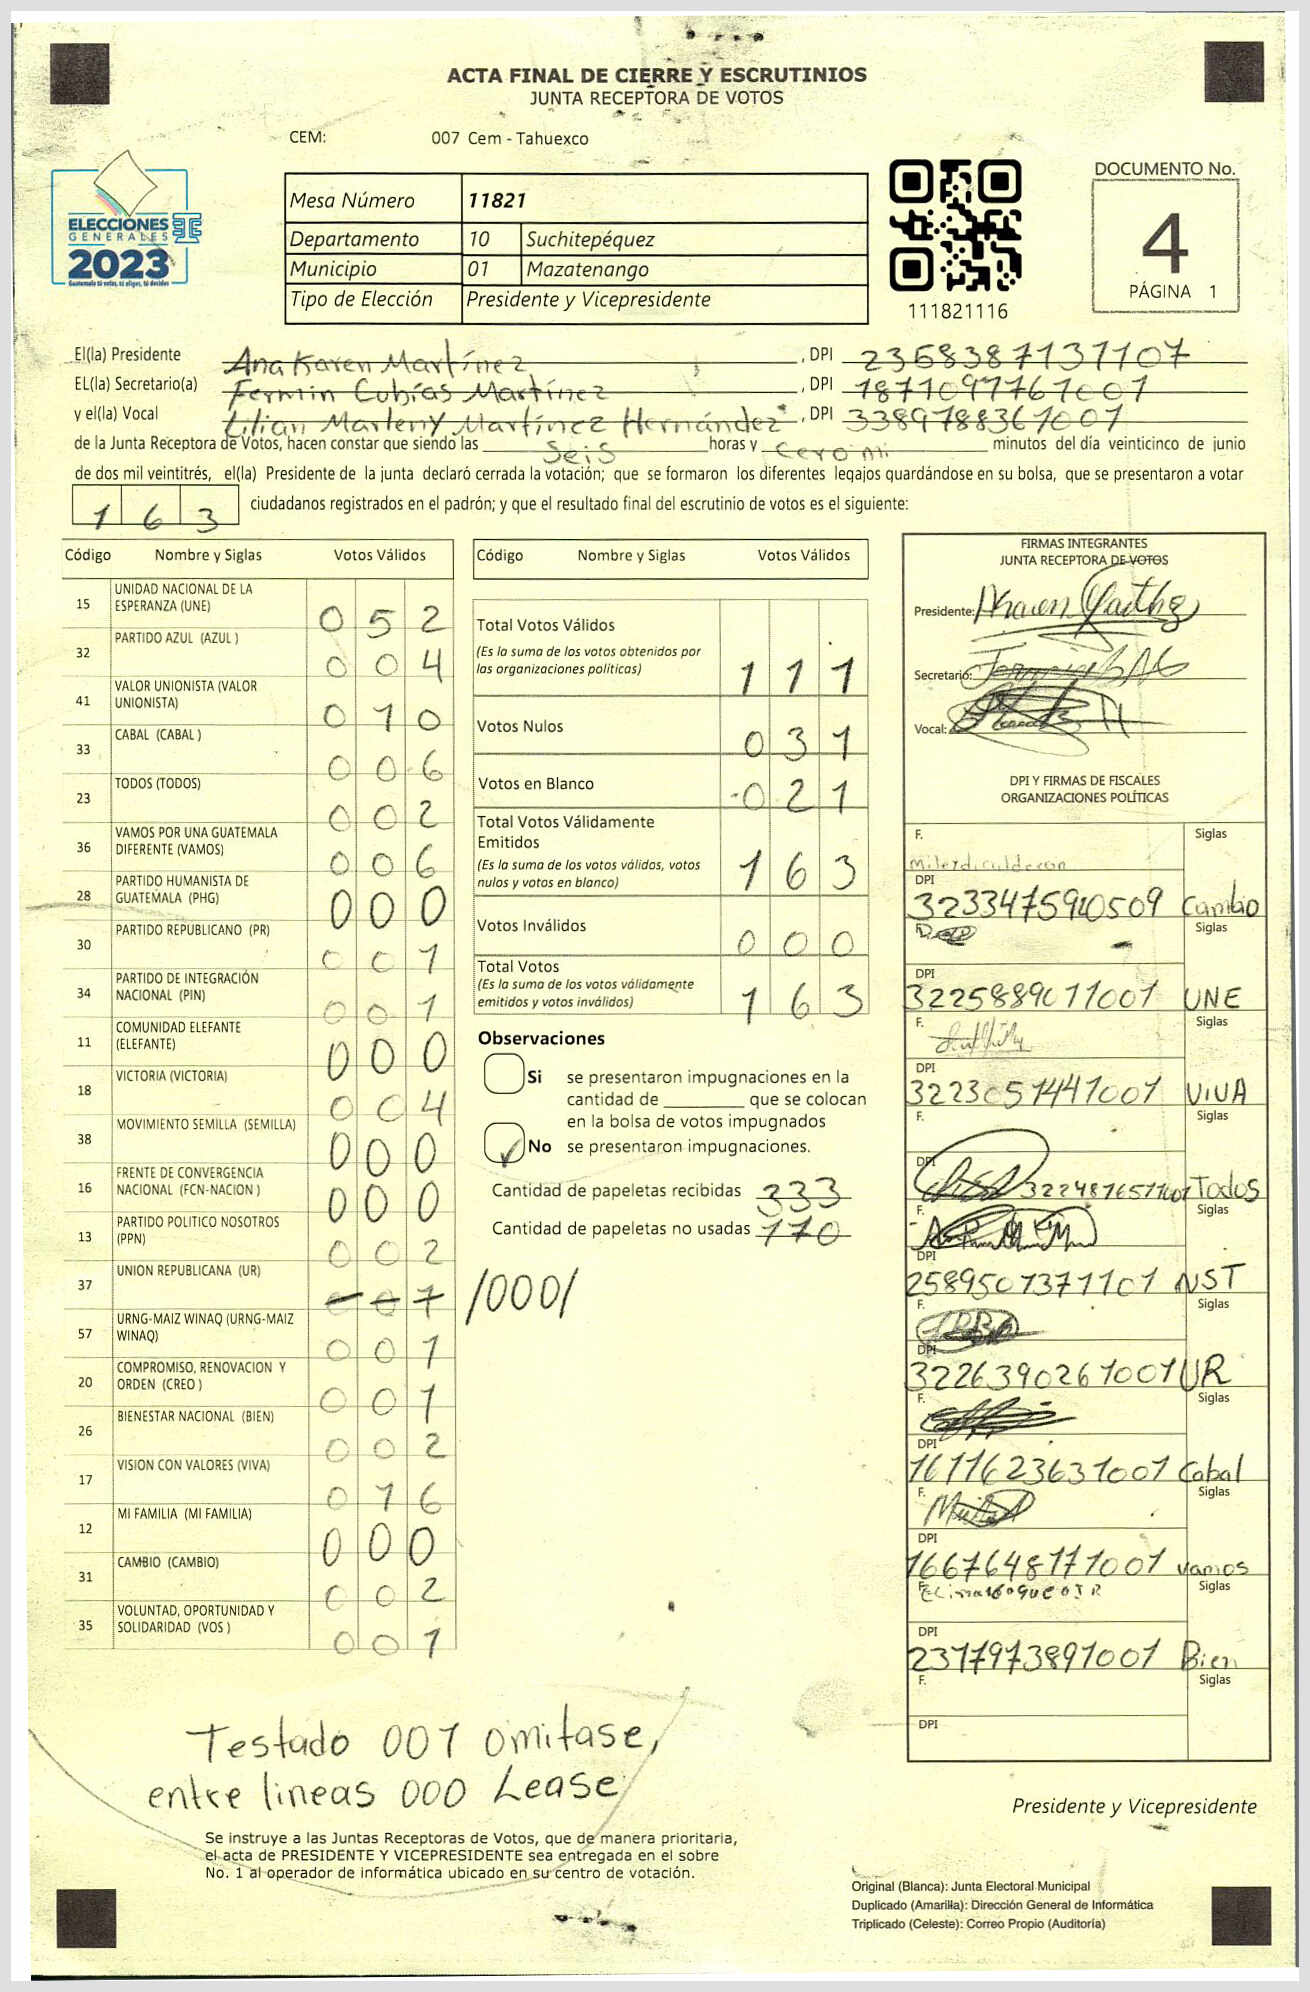 ACTA FINAL DE CIERRE Y ESCRUTINIOS
JUNTA RECEPTORA DE VOTOS
CEM: 007 Cem - Tahuexco
ELECCIONES
GENERALES
2023
Guatemala tú votas, tú eliges, tú decides
Mesa Número 11821
Departamento 10 Suchitepéquez
Municipio 01 Mazatenango
Tipo de Elección Presidente y Vicepresidente
111821116
DOCUMENTO No.
4
PÁGINA 1
El(la) Presidente Ana Karen Martínez , DPI 2368387131107
EL(la) Secretario(a) Fermin Cubías Martínez , DPI 1871097761001
y el(la) Vocal Lilian Marleny Martínez Hernández , DPI 3389788361001
de la Junta Receptora de Votos, hacen constar que siendo las Seis horas y cero minutos del día veinticinco de junio
de dos mil veintitrés, el(la) Presidente de la junta declaró cerrada la votación; que se formaron los diferentes legajos guardándose en su bolsa, que se presentaron a votar
163 ciudadanos registrados en el padrón; y que el resultado final del escrutinio de votos es el siguiente:
Código Nombre y Siglas Votos Válidos
15 UNIDAD NACIONAL DE LA ESPERANZA (UNE) 052
32 PARTIDO AZUL (AZUL ) 004
41 VALOR UNIONISTA (VALOR UNIONISTA) 010
33 CABAL (CABAL ) 006
23 TODOS (TODOS) 002
36 VAMOS POR UNA GUATEMALA DIFERENTE (VAMOS) 006
28 PARTIDO HUMANISTA DE GUATEMALA (PHG) 000
30 PARTIDO REPUBLICANO (PR) 001
34 PARTIDO DE INTEGRACIÓN NACIONAL (PIN) 001
11 COMUNIDAD ELEFANTE (ELEFANTE) 000
18 VICTORIA (VICTORIA) 004
38 MOVIMIENTO SEMILLA (SEMILLA) 000
16 FRENTE DE CONVERGENCIA NACIONAL (FCN-NACION ) 000
13 PARTIDO POLITICO NOSOTROS (PPN) 002
37 UNION REPUBLICANA (UR) 001 /000/
57 URNG-MAIZ WINAQ (URNG-MAIZ WINAQ) 001
20 COMPROMISO, RENOVACION Y ORDEN (CREO ) 001
26 BIENESTAR NACIONAL (BIEN) 002
17 VISION CON VALORES (VIVA) 016
12 MI FAMILIA (MI FAMILIA) 000
31 CAMBIO (CAMBIO) 002
35 VOLUNTAD, OPORTUNIDAD Y SOLIDARIDAD (VOS ) 001
Código Nombre y Siglas Votos Válidos
Total Votos Válidos
(Es la suma de los votos obtenidos por
las organizaciones políticas) 111
Votos Nulos 031
Votos en Blanco 021
Total Votos Válidamente
Emitidos
(Es la suma de los votos válidos, votos
nulos y votos en blanco) 163
Votos Inválidos 000
Total Votos
(Es la suma de los votos válidamente
emitidos y votos inválidos) 163
Observaciones
Si se presentaron impugnaciones en la
cantidad de ________ que se colocan
en la bolsa de votos impugnados
No se presentaron impugnaciones.
Cantidad de papeletas recibidas 333
Cantidad de papeletas no usadas 170
FIRMAS INTEGRANTES
JUNTA RECEPTORA DE VOTOS
Presidente:
Secretario:
Vocal:
DPI Y FIRMAS DE FISCALES
ORGANIZACIONES POLÍTICAS
F. Siglas
DPI
3233475910509 Cambio
F. Siglas
DPI
3225889011001 UNE
F. Siglas
DPI
3223051441001 VIVA
F. Siglas
DPI
3224876571001 Todos
F. Siglas
DPI
2589501371101 NST
F. Siglas
DPI
3226390261001 UR
F. Siglas
DPI
1611623631001 Cabal
F. Siglas
DPI
1667648171001 vamos
F. Siglas
DPI
2317973891001 Bien
F. Siglas
DPI
Testado 001 omitase,
entre lineas 000 Lease
Presidente y Vicepresidente
Se instruye a las Juntas Receptoras de Votos, que de manera prioritaria,
el acta de PRESIDENTE Y VICEPRESIDENTE sea entregada en el sobre
No. 1 al operador de informática ubicado en su centro de votación.
Original (Blanca): Junta Electoral Municipal
Duplicado (Amarilla): Dirección General de Informática
Triplicado (Celeste): Correo Propio (Auditoría)